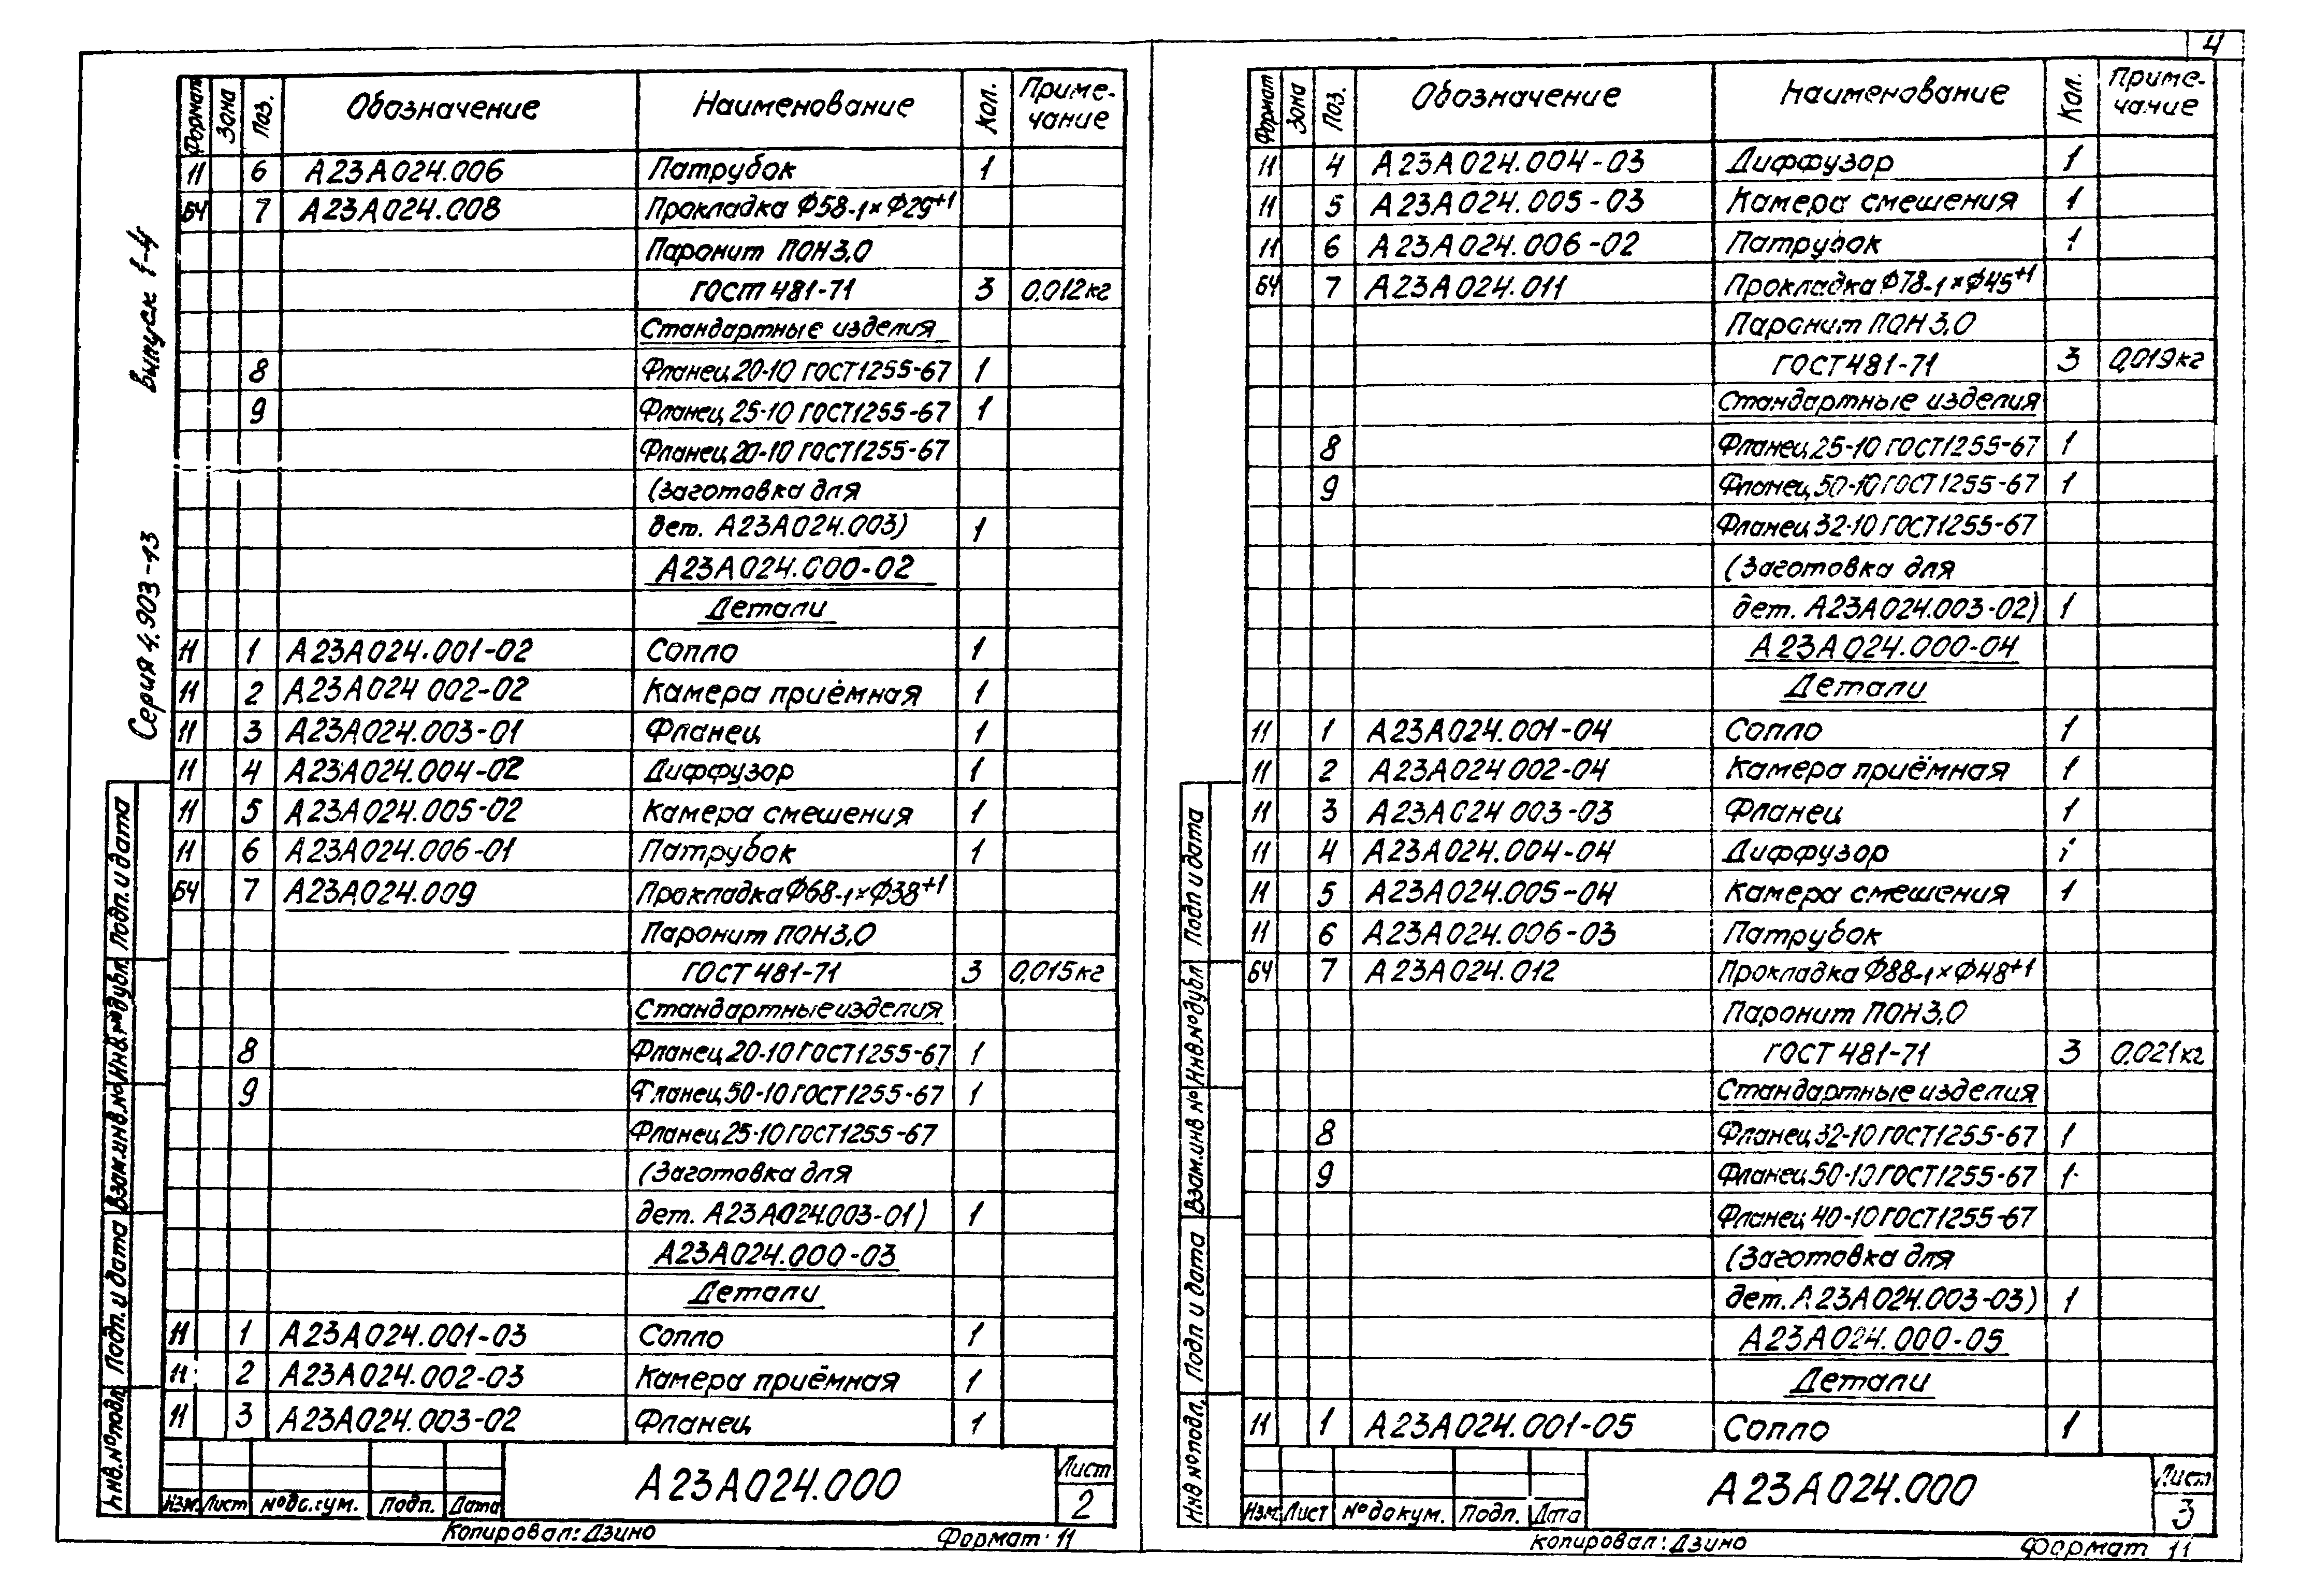 4
Серия 4.903-13 выпуск 1-4
Формат Зона Поз. Обозначение Наименование Кол. Приме-
чание
11 6 А23А024.006 Патрубок 1
БЧ 7 А23А024.008 Прокладка Ф58-1×Ф29+1
Паронит ПОН3,0
ГОСТ 481-71 3 0.012кг
Стандартные изделия
8 Фланец 20-10 ГОСТ1255-67 1
9 Фланец 25-10 ГОСТ1255-67 1
Фланец 20-10 ГОСТ1255-67
(Заготовка для
дет. А23А024.003) 1
А23А024.000-02
Детали
11 1 А23А024.001-02 Сопло 1
11 2 А23А024 002-02 Камера приёмная 1
11 3 А23А024.003-01 Фланец 1
11 4 А23А024.004-02 Диффузор 1
11 5 А23А024.005-02 Камера смешения 1
11 6 А23А024.006-01 Патрубок 1
БЧ 7 А23А024.009 Прокладка Ф68-1×Ф38+1
Паронит ПОН3,0
ГОСТ 481-71 3 0,015кг
Стандартные изделия
8 Фланец 20-10 ГОСТ1255-67 1
9 Фланец 50-10 ГОСТ1255-67 1
Фланец 25-10 ГОСТ1255-67
(Заготовка для
дет. А23А024.003-01) 1
А23А024.000-03
Детали
11 1 А23А024.001-03 Сопло 1
11 2 А23А024.002-03 Камера приёмная 1
11 3 А23А024.003-02 Фланец 1
Инв.№подл. Подп. и дата Взам.инв.№ Инв.№дубл. Подп. и дата
А23А024.000
Лист
2
Изм. Лист №докум. Подп. Дата
Копировал: Дзино Формат 11
Формат Зона Поз. Обозначение Наименование Кол. Приме-
чание
11 4 А23А024.004-03 Диффузор 1
11 5 А23А024.005-03 Камера смешения 1
11 6 А23А024.006-02 Патрубок 1
БЧ 7 А23А024.011 Прокладка Ф78-1×Ф45+1
Паронит ПОН3,0
ГОСТ 481-71 3 0,019кг
Стандартные изделия
8 Фланец 25-10 ГОСТ1255-67 1
9 Фланец 50-10 ГОСТ1255-67 1
Фланец 32-10 ГОСТ1255-67
(Заготовка для
дет. А23А024.003-02) 1
А23А024.000-04
Детали
11 1 А23А024.001-04 Сопло 1
11 2 А23А024 002-04 Камера приёмная 1
11 3 А23А024 003-03 Фланец 1
11 4 А23А024.004-04 Диффузор 1
11 5 А23А024.005-04 Камера смешения 1
11 6 А23А024.006-03 Патрубок
БЧ 7 А23А024.012 Прокладка Ф88-1×Ф48+1
Паронит ПОН3,0
ГОСТ 481-71 3 0.021кг
Стандартные изделия
8 Фланец 32-10 ГОСТ1255-67 1
9 Фланец 50-10 ГОСТ1255-67 1
Фланец 40-10 ГОСТ1255-67
(Заготовка для
дет. А23А024.003-03) 1
А23А024.000-05
Детали
11 1 А23А024.001-05 Сопло 1
Инв №подл. Подп и дата Взам.инв № Инв.№дубл Подп и дата
А23А024.000
Лист
3
Изм. Лист №докум. Подп. Дата
Копировал: Дзино Формат 11